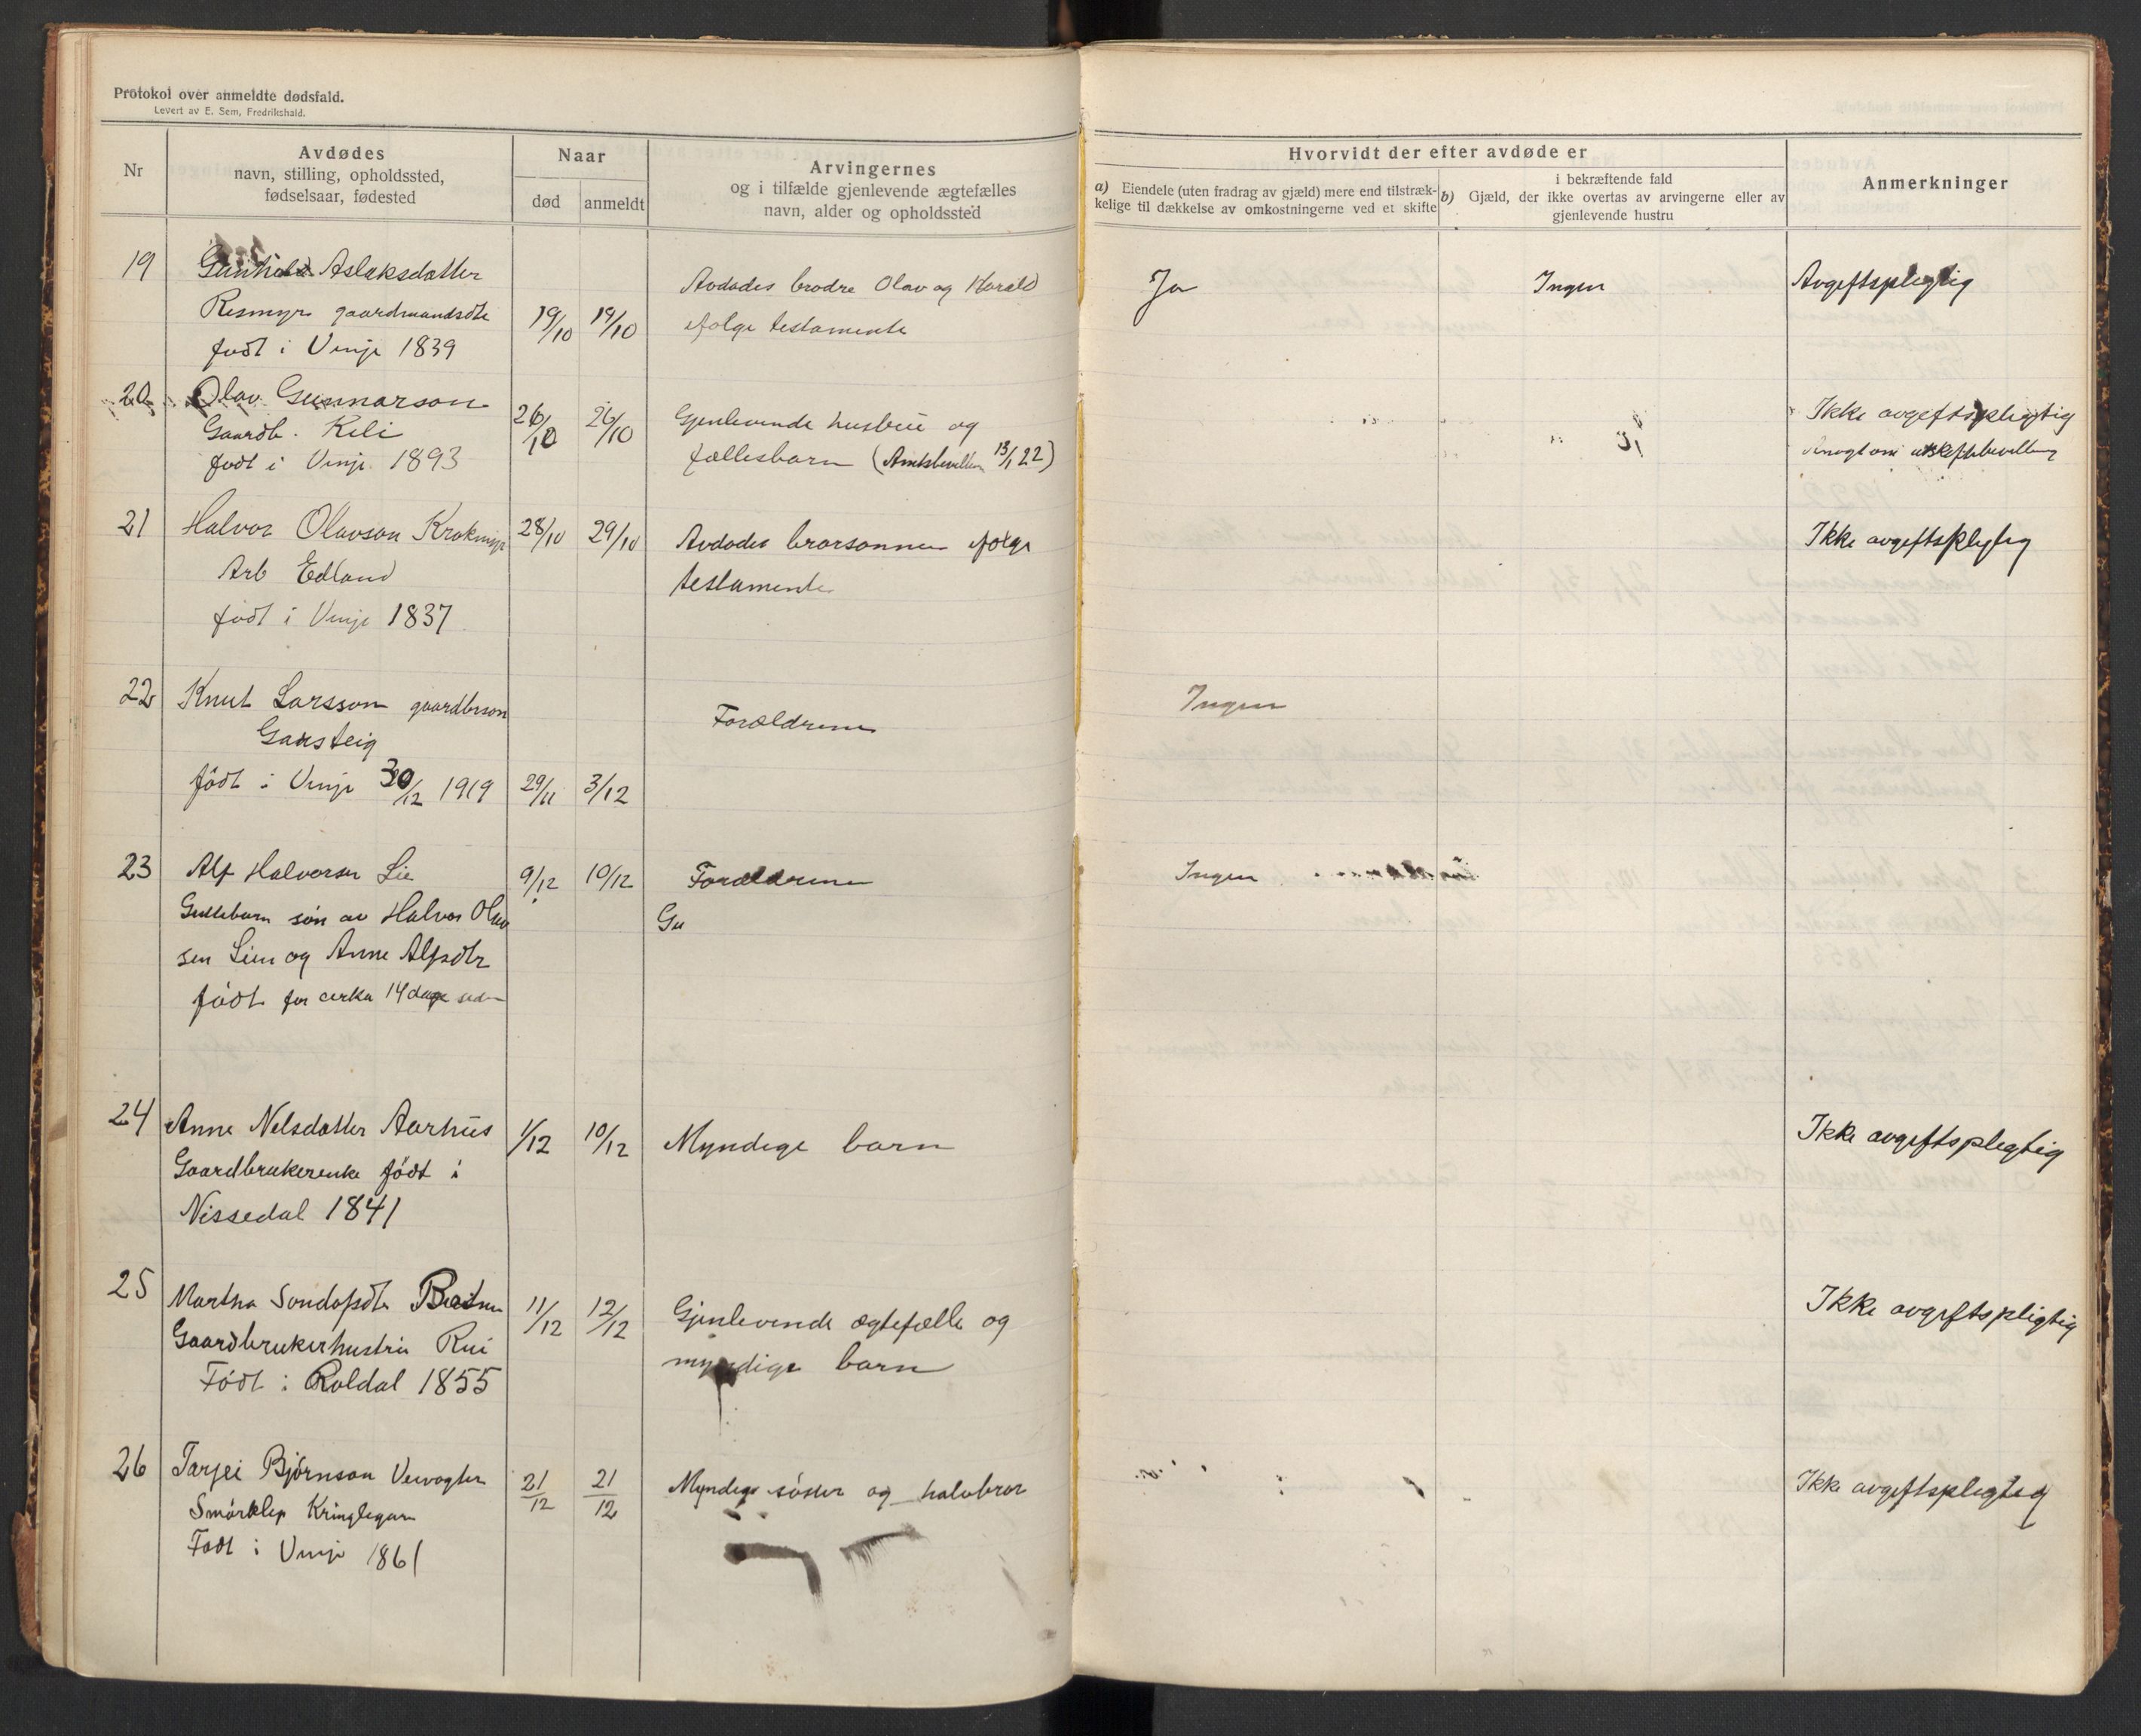 Protokol over anmeldte dødsfald.
Levert av E. Sem, Fredrikshald.
Nr
Avdødes
navn, stilling, opholdssted,
fødselsaar, fødested
Naar
død
anmeldt
Arvingernes
og i tilfælde gjenlevende ægtefælles
navn, alder og opholdssted
Hvorvidt der efter avdøde er
a) Eiendele (uten fradrag av gjæld) mere end tilstræk-
kelige til dækkelse av omkostningerne ved et skifte
i bekræftende fald
b) Gjæld, der ikke overtas av arvingerne eller av
gjenlevende hustru
Anmerkninger
19 Gunhild Aslaksdatter
Resmyr gaardmandsdtr
født i Vinje 1839
19/10 19/10
Avdødes brødre Olav og Harald
ifølge testamente
Ja
Ingen
Avgiftspligtig
20 Olav Gunnarson
Gaardb. Keli
født i Vinje 1893
26/10 26/10
Gjenlevende hustru og
fællesbarn (Amtsbevilln 13/1 22)
Ikke avgeftspligtig
21 Halvor Olavson Krokmyr
Arb Edland
født i Vinje 1837
28/10 29/10
Avdødes brorsønner ifølge
testamente
Ikke avgeftspligtig
22 Knut Larsson gaardbrson
Garsteig
født i Vinje 30/12 1919
29/11 3/12
Forældrene
Ingen
23 Alf Halvorsen Lie
Guttebarn søn av Halvor Olav
sen Lien og Anne Alfsdtr
født for cirka 14 dage siden
9/12 10/12
Forældrene
Gu
Ingen
24 Anne Nelsdatter Aarhus
Gaardbrukerenke født i
Nissedal 1841
1/12 10/12
Myndige barn
Ikke avgeftspligtig
25 Martha Sondresdtr
Gaardbrukerhustru Rui
Født i Røldal 1855
11/12 12/12
Gjenlevende ægtefælle og
myndige barn
Ikke avgeftspligtig
26 Tarjei Bjørnson Veivogter
Smørklep Kringlegarn
Født i Vinje 1861
21/12 21/12
Myndige søster og halvbror
Ikke avgeftspligtig